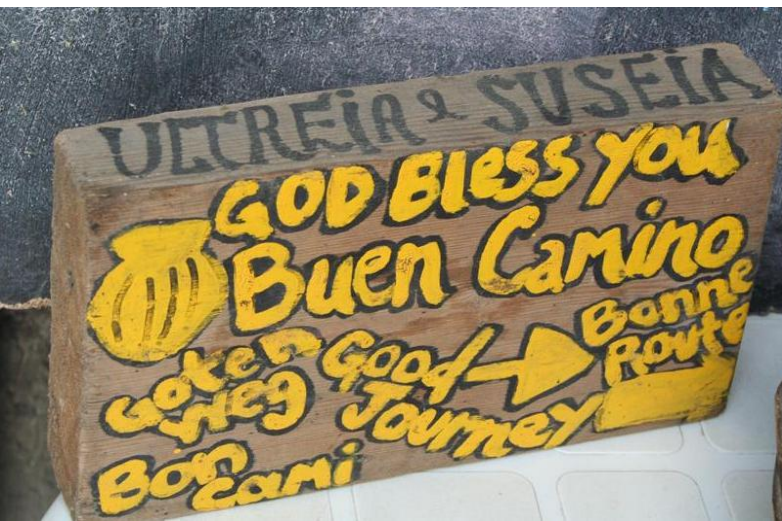 ULTREIA & SUSEIA
GOD Bless You
Buen Camino
Goten
Weg
Good
Journey
Bonne
Route
Bon
cami